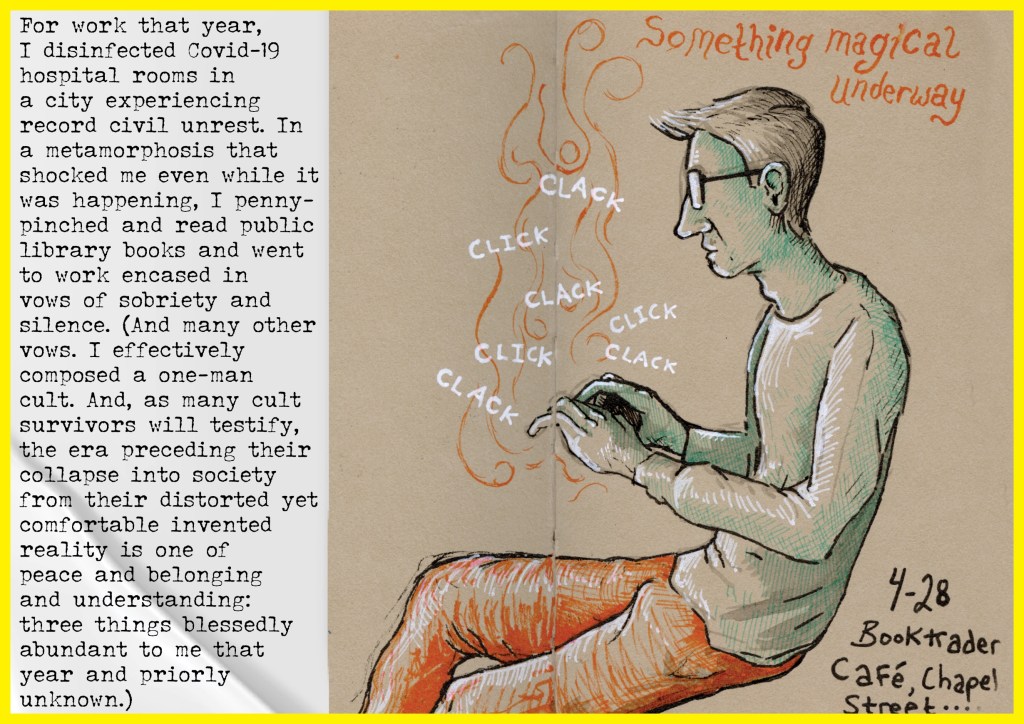 For work that year,
I disinfected Covid-19
hospital rooms in
a city experiencing
record civil unrest. In
a metamorphosis that
shocked me even while it
was happening, I penny-
pinched and read public
library books and went
to work encased in
vows of sobriety and
silence. (And many other
vows. I effectively
composed a one-man
cult. And, as many cult
survivors will testify,
the era preceding their
collapse into society
from their distorted yet
comfortable invented
reality is one of
peace and belonging
and understanding:
three things blessedly
abundant to me that
year and priorly
unknown.)
Something magical
underway
CLACK
CLICK
CLACK
CLICK
CLICK
CLACK
CLACK
4-28
Booktrader
Café, Chapel
Street....